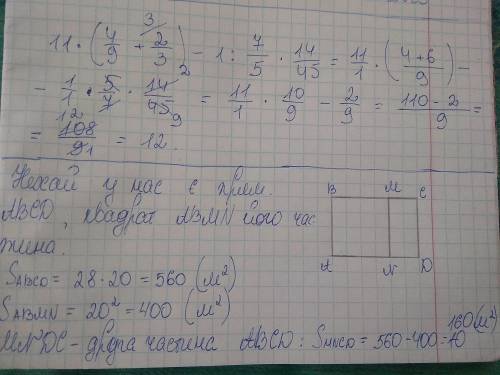 11 · (4/9 + 2/3) - 1 : 7/5 · 14/45 = 11/1 · (4+6)/9 -
- 1/1 · 5/7 · 14/45 = 11/1 · 10/9 - 2/9 = (110-2)/9 =
= 108/9 = 12.
Нехай у нас є прям.
ABCD, квадрат ABMN його час
тина.
B M C
A N D
S ABCD = 28 · 20 = 560 (м²)
S ABMN = 20² = 400 (м²)
MNDC - друга частина ABCD : S MNCD = 560 - 400 = 160 (м²)